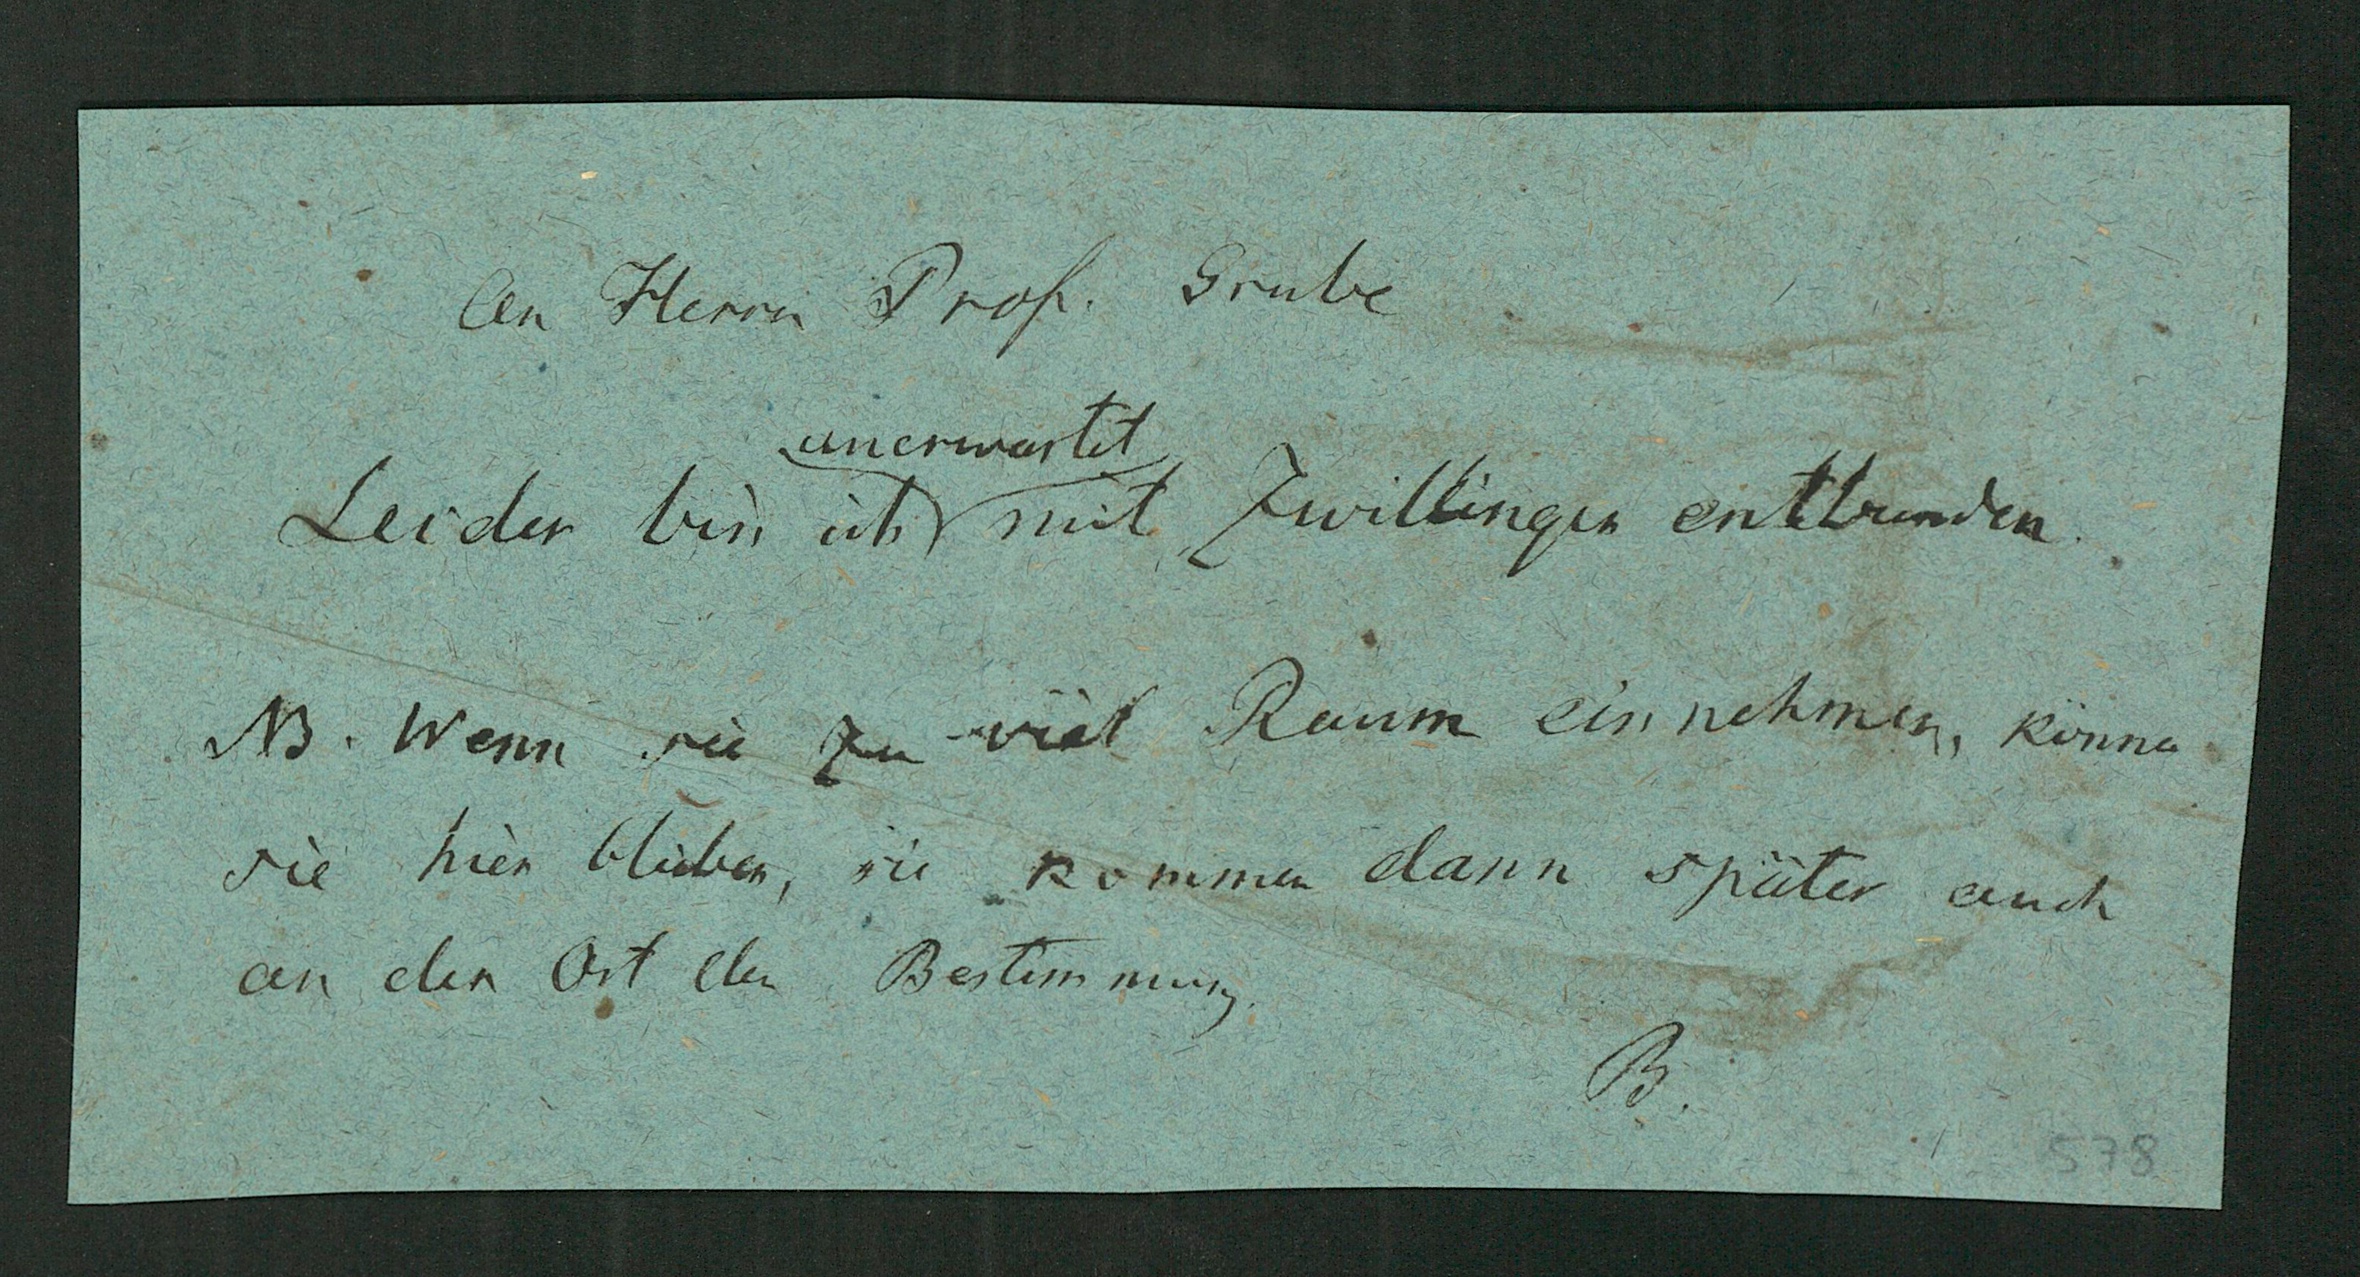 An Herrn Prof. Grube
unerwartet
Leider bin ich mit Zwillingen entbunden.
NB. Wenn sie zu viel Raum einnehmen, können
sie hier bleiben, sie kommen dann später auch
an den Ort der Bestimmung.
B.
578